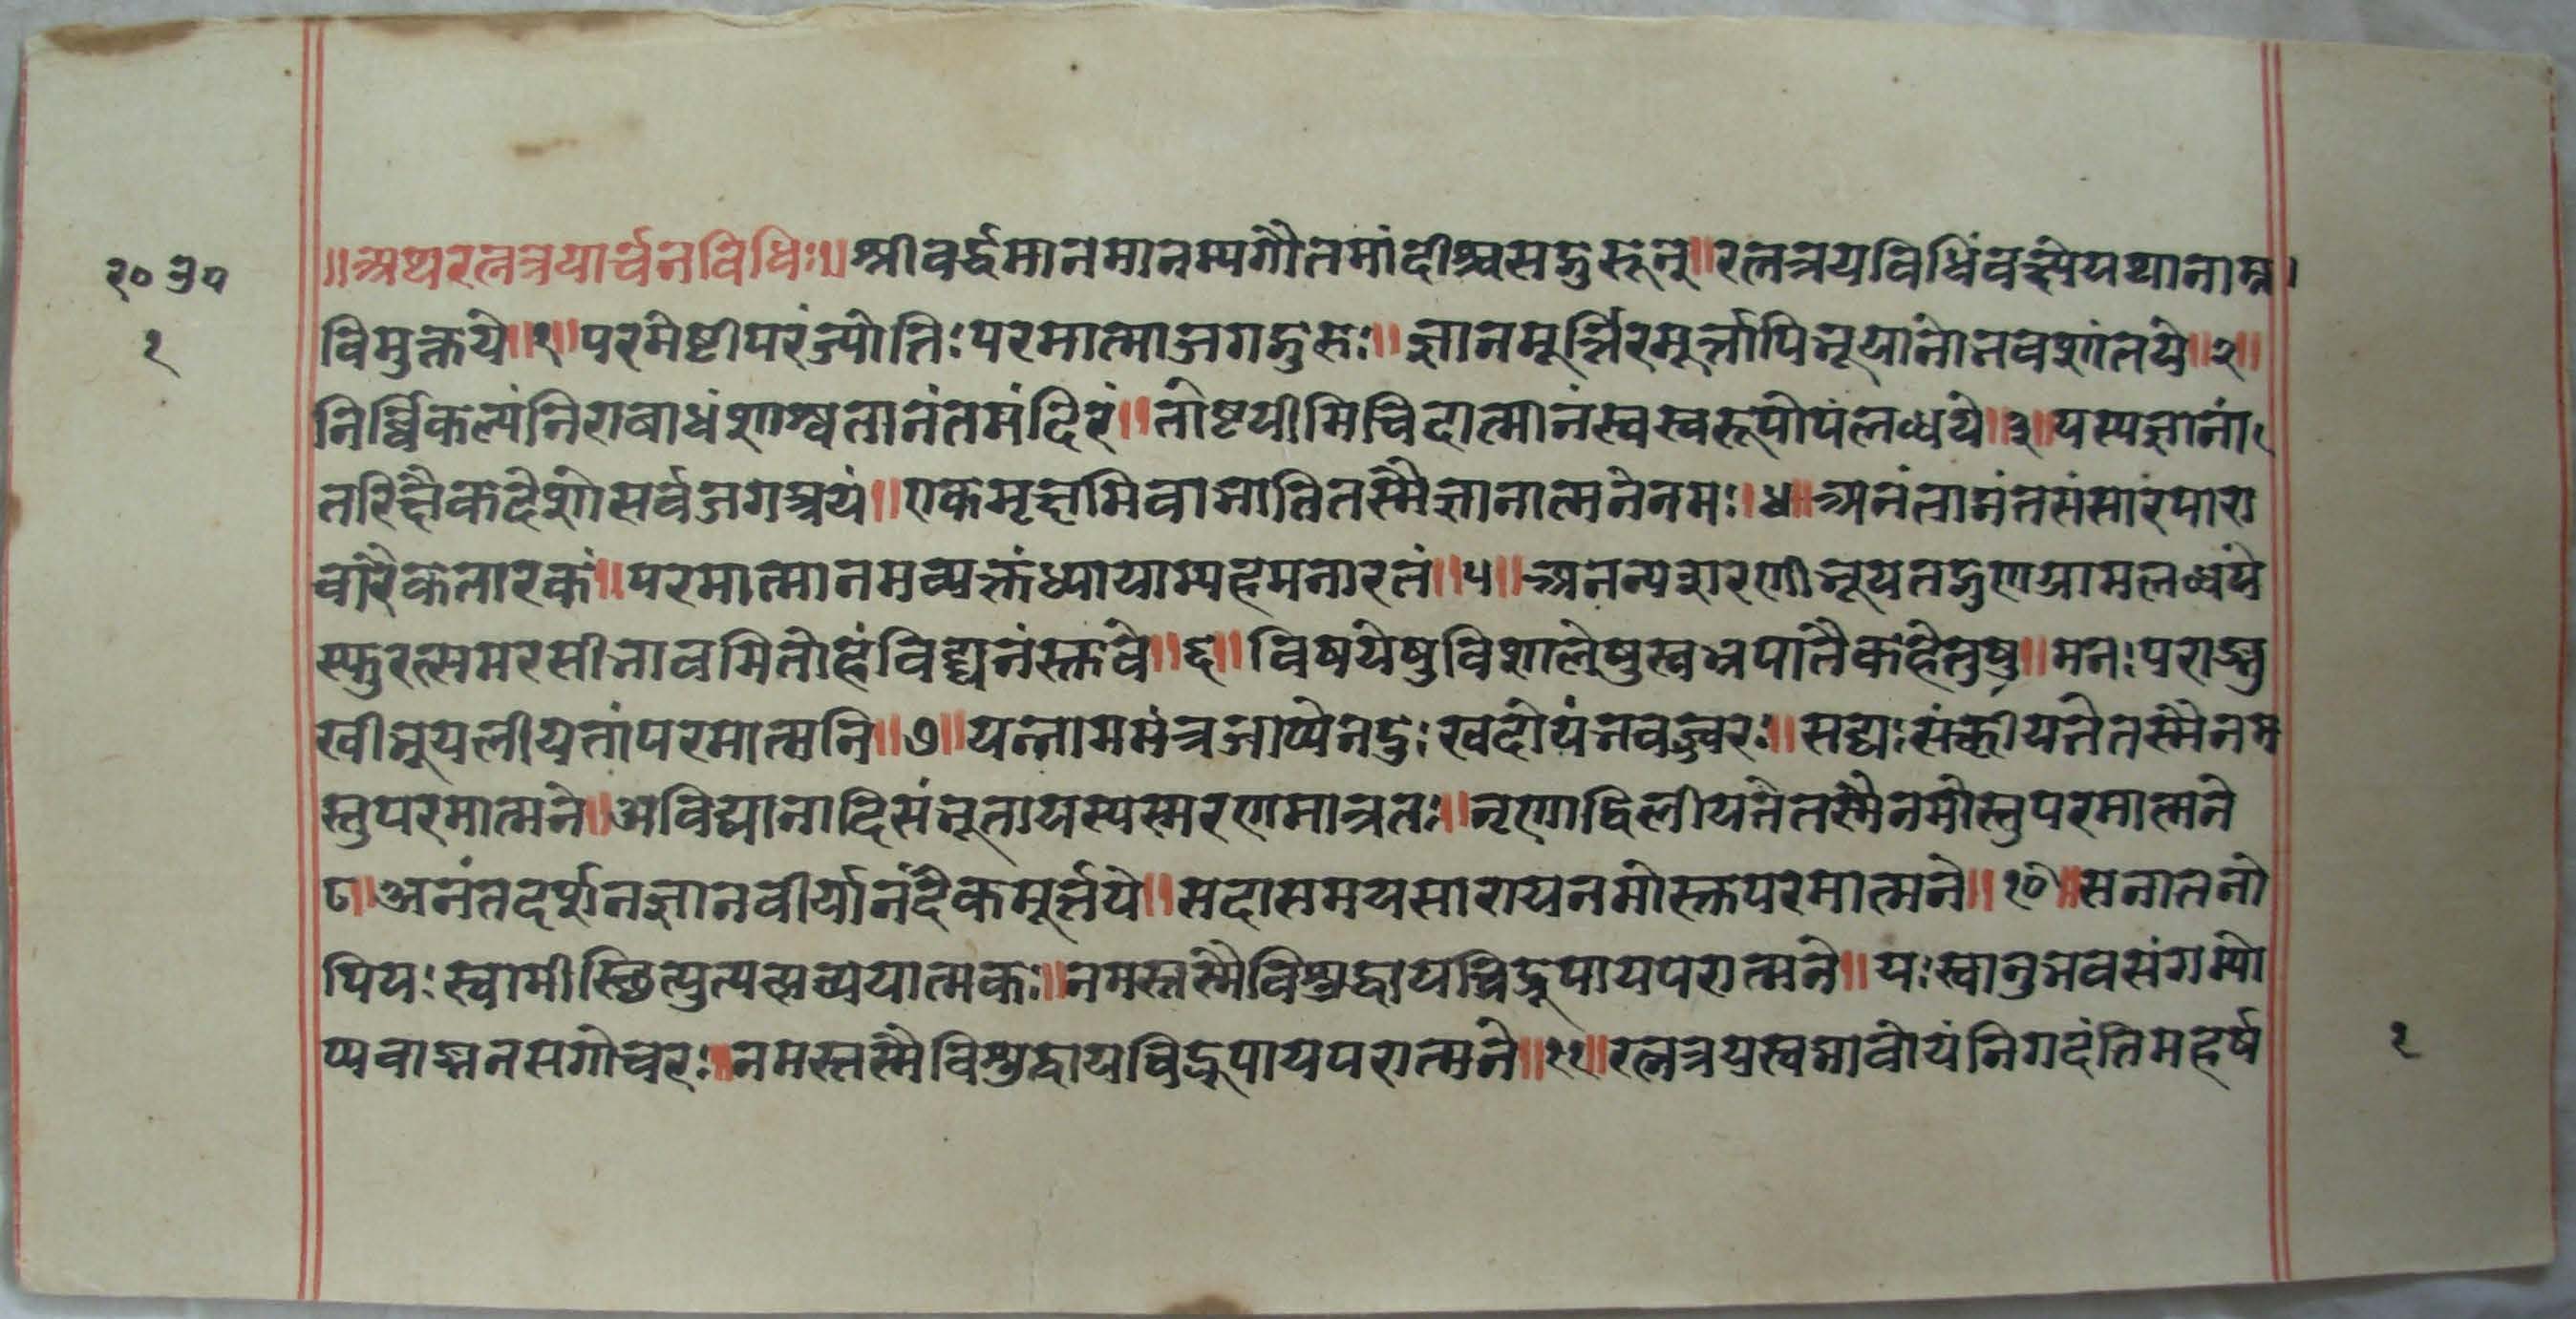 ॥अथरत्नत्रयार्च्चनविधिः॥श्रीवर्द्धमानमानम्यगौतमांदीश्चसद्गुरून्॥रत्नत्रयविधिंवक्ष्येयथानाम्न।
र० त्र० प
१
विमुक्तये॥१॥परमेष्टीपरंज्योतिःपरमात्माजगद्गुरुः॥ज्ञानमूर्त्तिरमूर्त्तोपिभूयान्नोभवशांतये॥२॥
निर्व्विकल्पंनिराबाधंशाश्वतानंतमंदिरं॥तोष्टयीमिचिदात्मानंस्वस्वरूपोपंलब्धये॥३॥यस्यज्ञानां
तरिक्षैकदेशेसर्वजगत्त्रयं॥एकमृक्षमिवाभातितस्मैज्ञानात्मनेनमः॥४॥अनंतानंतसंसारंपारा
वारैकतारकं॥परमात्मानमव्यक्तंध्यायाम्यहमनारतं॥५॥अनन्यशरणीभूयतद्गुणग्रामलब्धये
स्फुरत्समरसीभावमितोहंचिद्घनंस्तुवे॥६॥विषयेषुविशालेषुस्वभ्रपातैकहेतुषु॥मनःपराङ्मु
खीभूयलीयतांपरमात्मनि॥७॥यन्नाममंत्रजाप्येनदुःखदोयंभवज्वरः॥सद्यःसंक्षीयतेतस्मैनम
स्तुपरमात्मने॥अविद्यानादिसंभूतायस्यस्मरणमात्रतः॥नृणांविलीयतेतस्मैनमोस्तुपरमात्मने
८॥अनंतदर्शनज्ञानवीर्यानंदैकमूर्त्तये॥सदासमयसारायनमोस्तुपरमात्मने॥१०॥सनातनो
पियःस्वामीस्थित्युत्पत्तिव्ययात्मकः॥नमस्तस्मैविशुद्धायचिद्रूपायपरात्मने॥यःस्वानुभवसंगम्यो
प्यवाङ्मनसगोचरः॥नमस्तस्मैविशुद्धायचिद्रूपायपरात्मने॥१२॥रत्नत्रयस्वभावोयंनिगदंतिमहर्ष
१